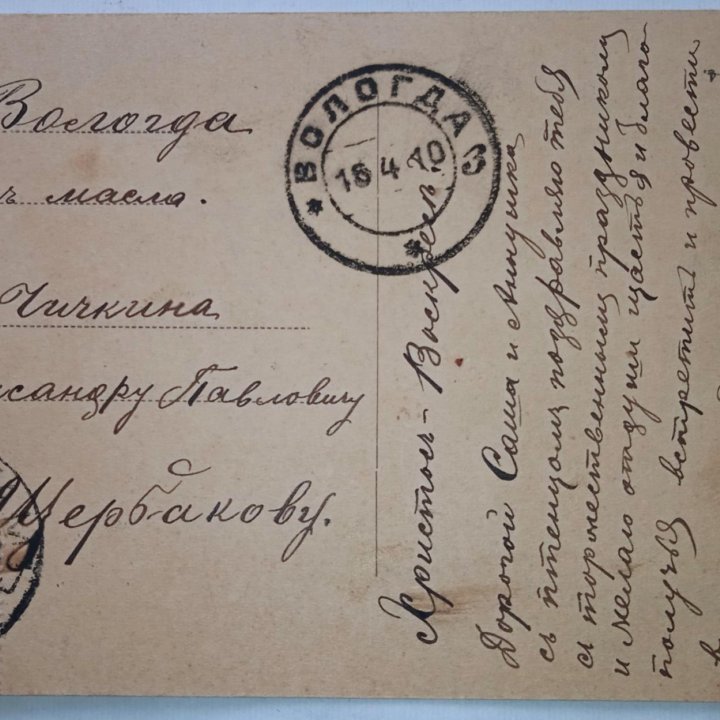 Вологда
масла.
Чичкина
ксандру Павловичу
Щербакову.
ВОЛОГДА
16 4 10
Христосъ - Воскресъ.
Дорогой Саша и Аннушка
съ птенцомъ поздравляю тебя
съ торжественнымъ праздникомъ
и желаю отдуши щастья и благо
получья встретить и провести